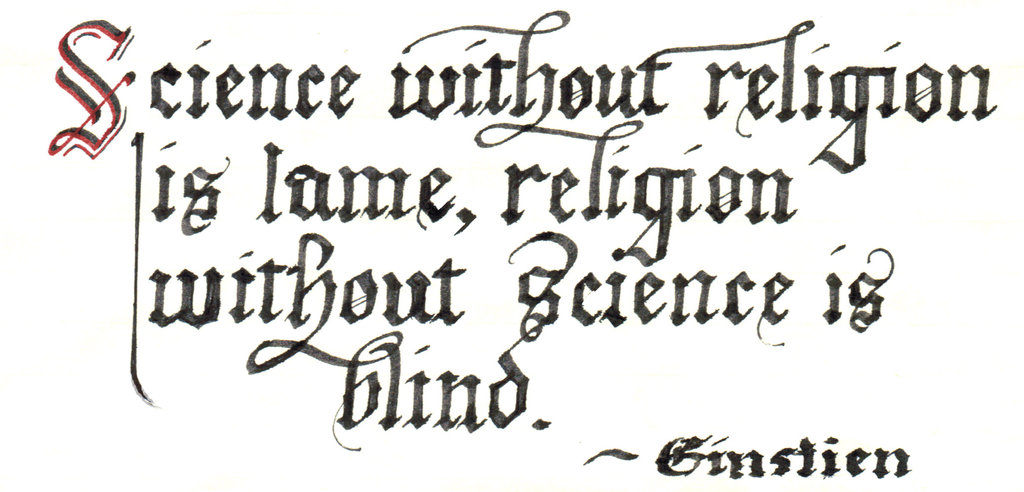 Science without religion
is lame, religion
without Science is
blind.
~ Einstien